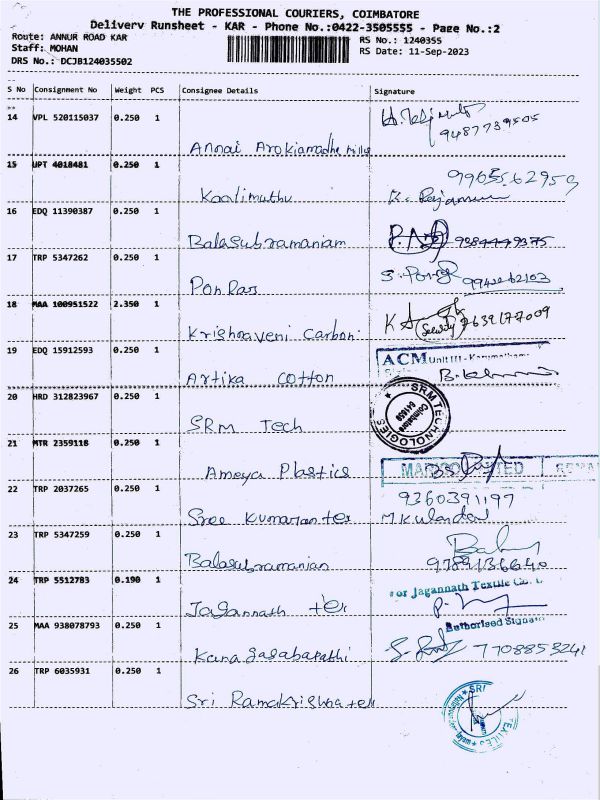 THE PROFESSIONAL COURIERS, COIMBATORE
Delivery Runsheet - KAR - Phone No.:0422-3505555 - Page No.:2
Route: ANNUR ROAD KAR
RS No.: 1240355
Staff: MOHAN
RS Date: 11-Sep-2023
DRS No.: DCJB124035502
S No Consignment No Weight PCS Consignee Details Signature
14 VPL 520115037 0.250 1
9487739505
Annai Arokiamadha Mills
15 UPT 4018481 0.250 1
9965562959
Kaalimuthu K. Rajamm
16 EDQ 11390387 0.250 1
Balasubramaniam 9384449375
17 TRP 5347262 0.250 1
Pon Ras 9942262103
18 MAA 100951522 2.350 1
Krishnaveni Carbon. 7639177009
19 EDQ 15912593 0.250 1
ACM Unit III - Karumathampatti
Artika cotton
20 HRD 312823967 0.250 1
SRM TECHNOLOGIES
Coimbatore
641659
SRM Tech
21 MTR 2359118 0.250 1
Ameya Plastics
22 TRP 2037265 0.250 1
9360391197
Sree Kumaran tex M Kulandai
23 TRP 5347259 0.250 1
Babu
Balasubramanian 9789136640
24 TRP 5512783 0.190 1
For Jagannath Textile Co. L
Jagannath tex
Authorised Signato
25 MAA 938078793 0.250 1
Kanagasabapathi 7708853241
26 TRP 6035931 0.250 1
Sri Ramakrishna tex
SRI
TEXTILES